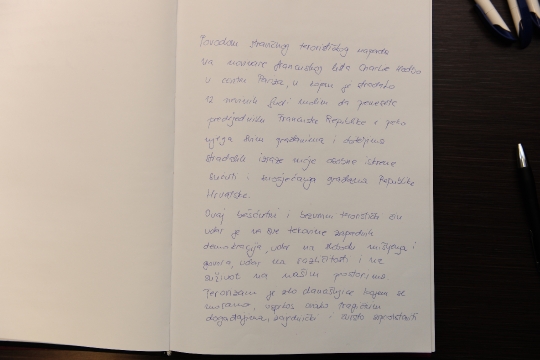 Povodom stravičnog terorističkog napada
na novinare francuskog lista Charlie Hebdo
u centru Pariza, u kojem je stradalo
12 nevinih ljudi molim da prenesete
predsjedniku Francuske Republike i preko
njega svim građanima i obiteljima
stradalih izraze moje osobne iskrene
sućuti i suosjećanja građana Republike
Hrvatske.
Ovaj bešćutni i bezumni teroristički čin
udar je na sve tekovine zapadnih
demokracija, udar na slobodu mišljenja i
govora, udar na različitosti i na
suživot na našim prostorima.
Terorizam je zlo današnjice kojem se
moramo, usprkos ovako tragičnim
događajima zajednički i čvrsto suprotstaviti